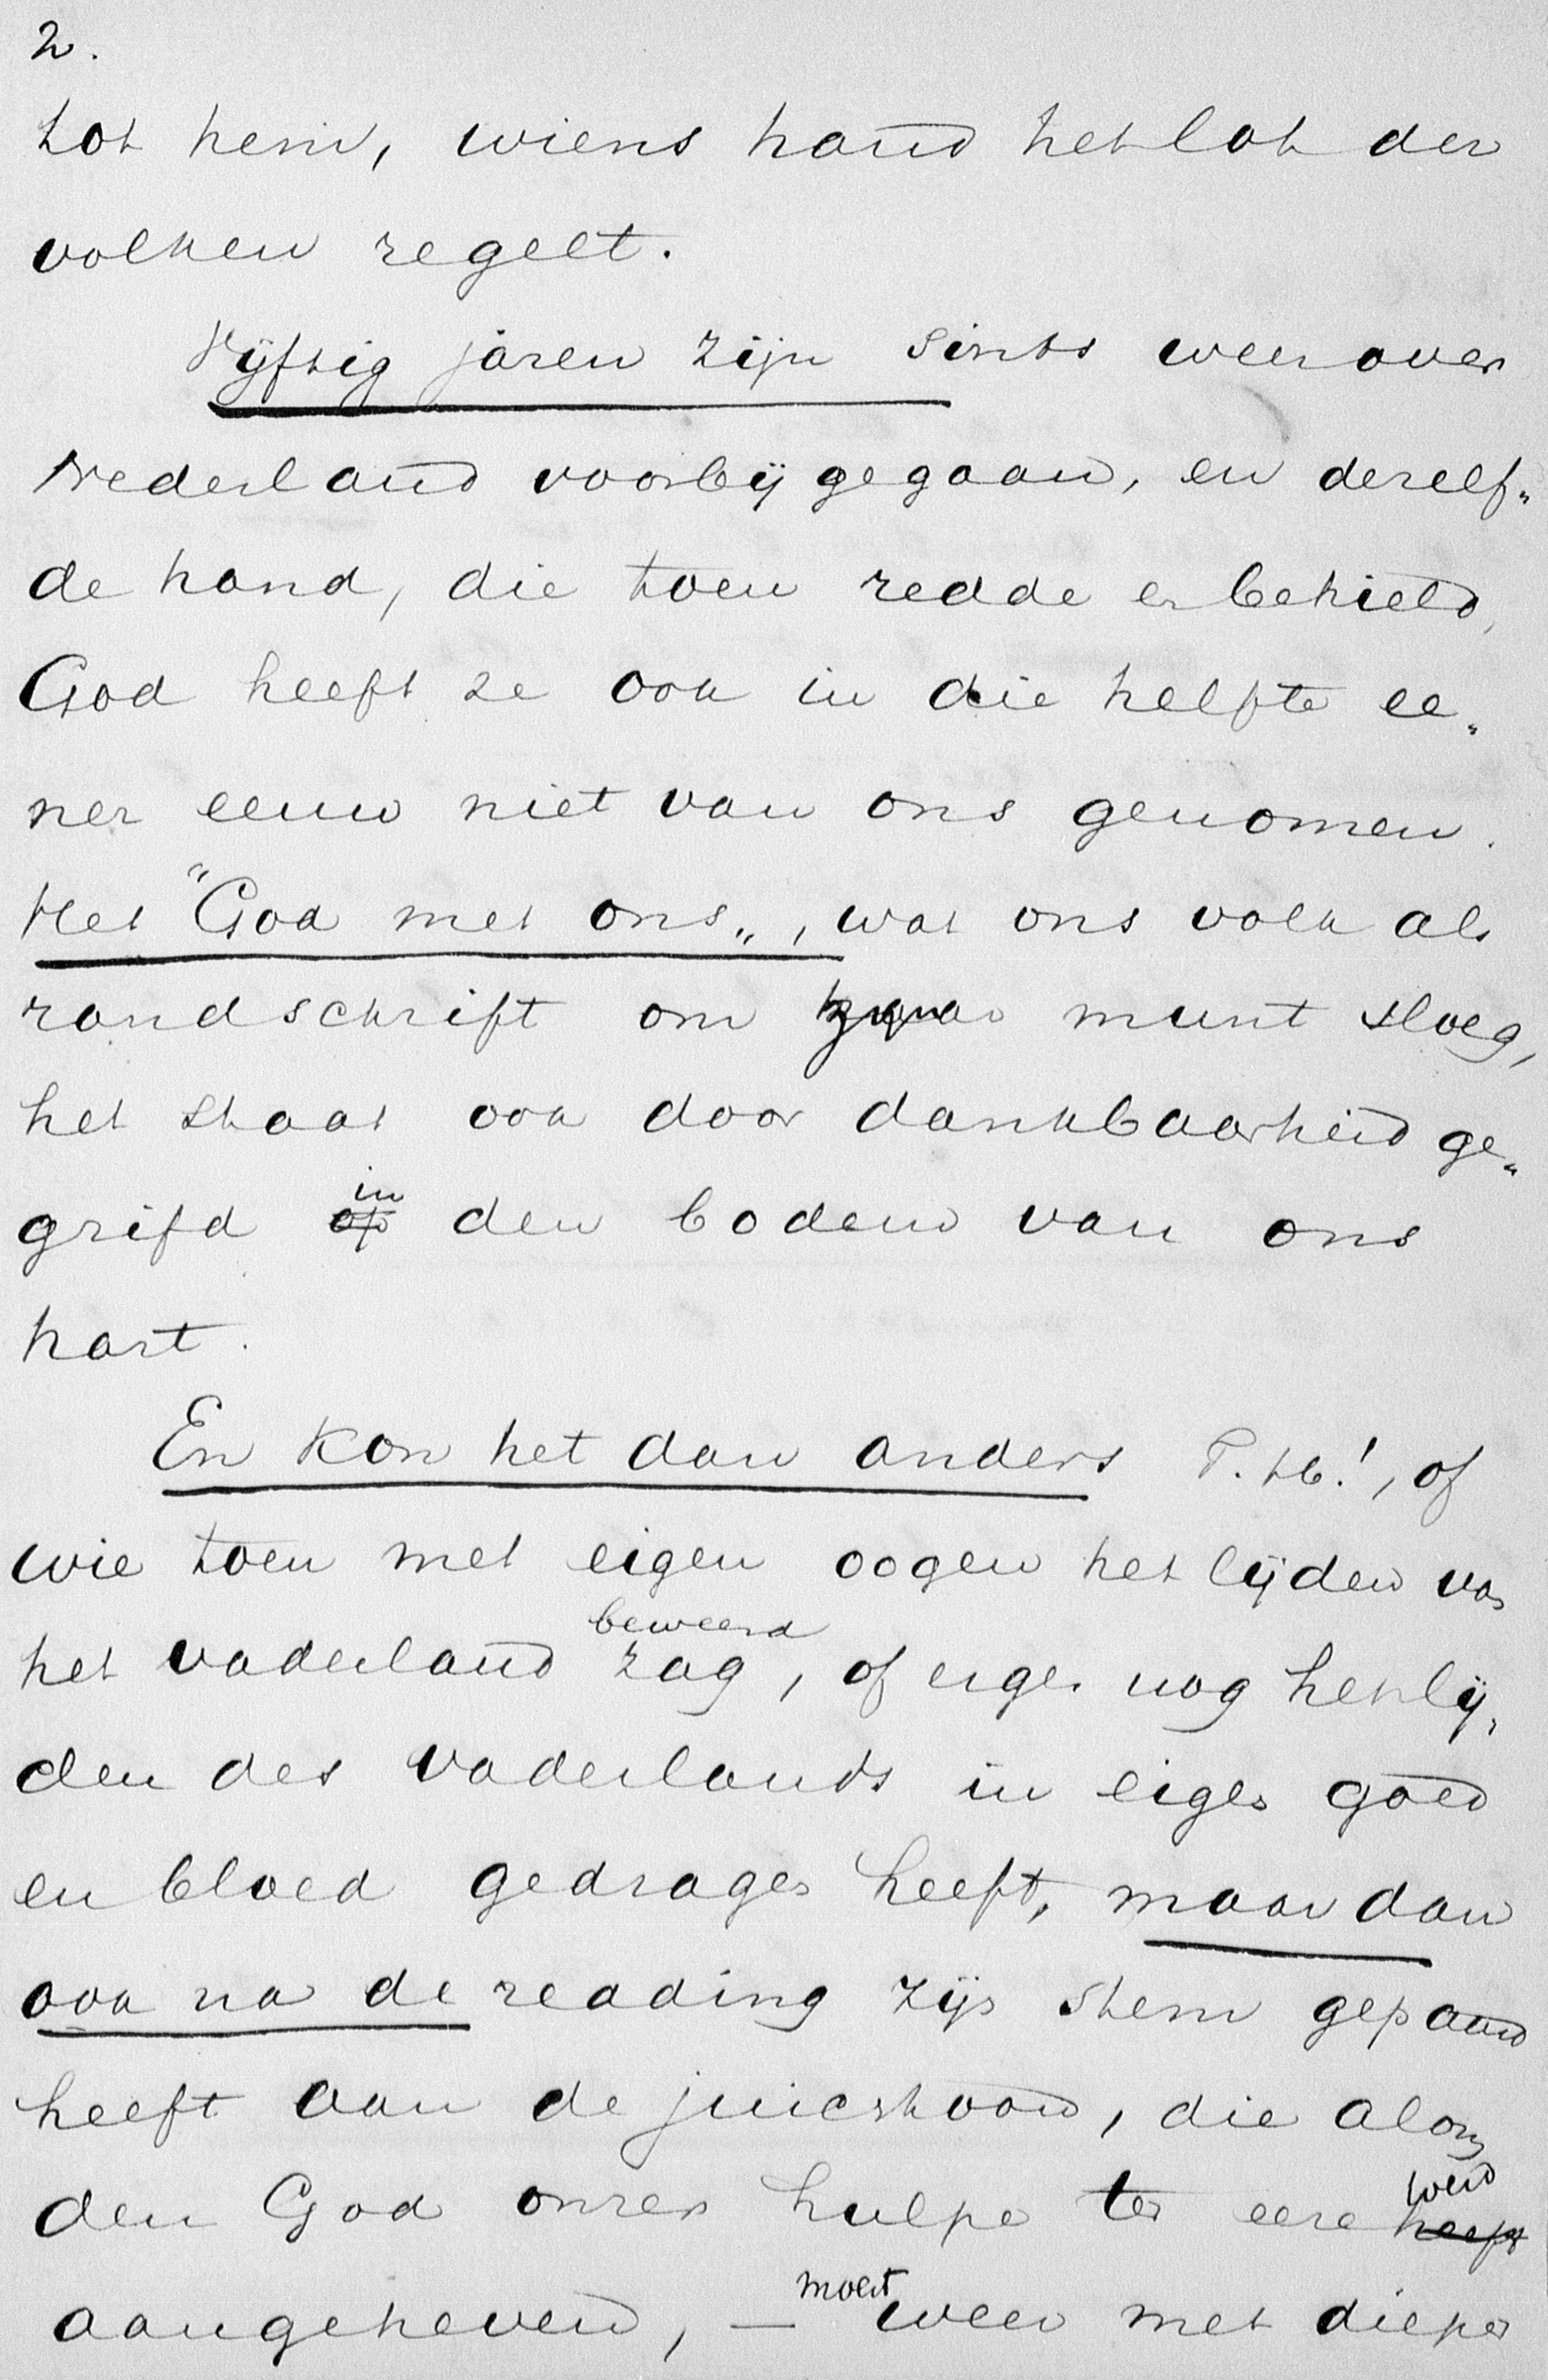 2.
tot hem, wiens hand het lot der
volken regelt.
Vijftig jaren zijn sints weer over
Nederland voorbijgegaan, en dezelf„
de hand, die toen redde en behield,
God heeft ze ook in die helfte ee„
ner eeuw niet van ons genomen.
Het "God met ons„, wat ons volk als
randschrift om munt sloeg,
het staat ook door dankbaarheid ge„
grifd op in den bodem van ons
hart.
En kon het dan anders T. H.!, of
wie toen met eigen oogen het lijden van
het vaderland beweend zag, of erger nog het lij„
den des vaderlands in eigen goed
en bloed gedragen heeft, maar dan
ook na de redding zijn stem gepaard
heeft aan de juichtoon, die alom
den God onzer hulpe ter eere heeft werd
aangeheven, — moet weer met dieper